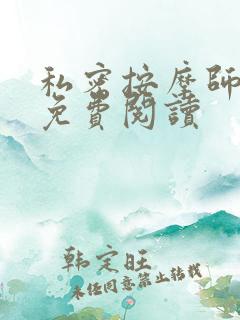 私密按摩師
免費閱讀
韩定旺
未经同意禁止转载